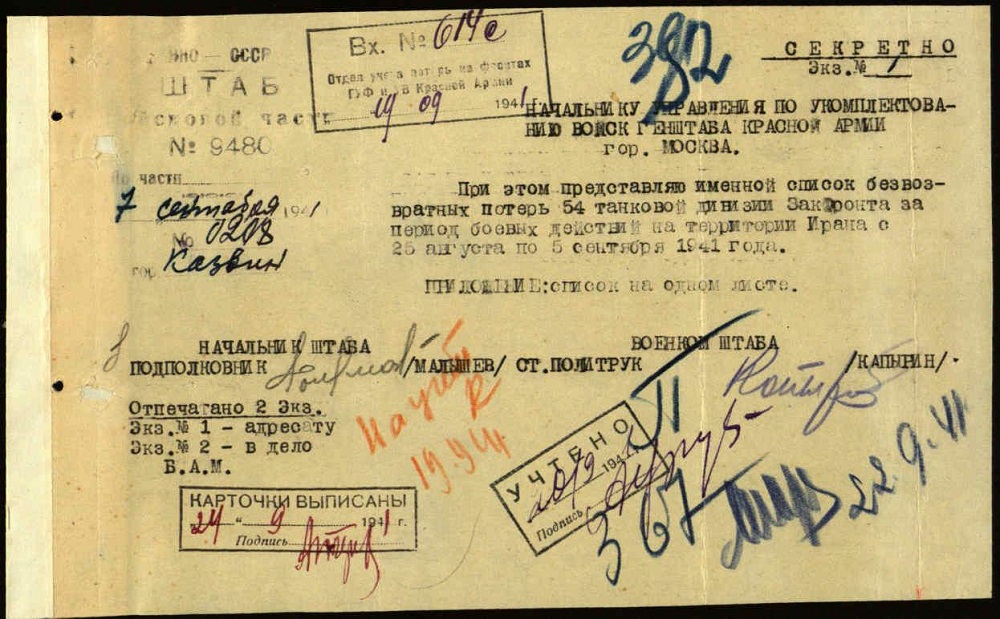 НКО — СССР
ШТАБ
Войсковой части
№ 9480
По части
7 сентября 1941
№ 0208
гор. Казвин
Вх. № 614с
Отдел учета потерь на фронтах
ГУФ и УВ Красной Армии
19 09 1941
382
СЕКРЕТНО
Экз.№ 1
НАЧАЛЬНИКУ УПРАВЛЕНИЯ ПО УКОМПЛЕКТОВА-
НИЮ ВОЙСК ГЕНШТАБА КРАСНОЙ АРМИИ
гор. МОСКВА.
При этом представляю именной список безвоз-
вратных потерь 54 танковой дивизии Закфронта за
период боевых действий на территории Ирана с
25 августа по 5 сентября 1941 года.
ПРИЛОЖЕНИЕ:список на одном листе.
НАЧАЛЬНИК ШТАБА
ПОДПОЛКОВНИК /МАЛЫШЕВ/
ВОЕНКОМ ШТАБА
СТ.ПОЛИТРУК /КАПЫРИН/.
Отпечатано 2 Экз.
Экз.№ 1 - адресату
Экз.№ 2 - в дело
Б.А.М.
На учет
19.9.41
КАРТОЧКИ ВЫПИСАНЫ
"24" 9 1941 г.
Подпись
УЧТЕНО
20/9 1941
Подпись
367
22.9.41